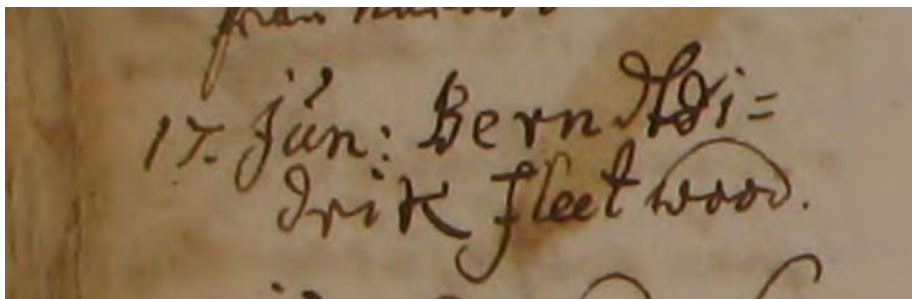 från
17. Jún: Bernd Di=
drik Fleetwood.